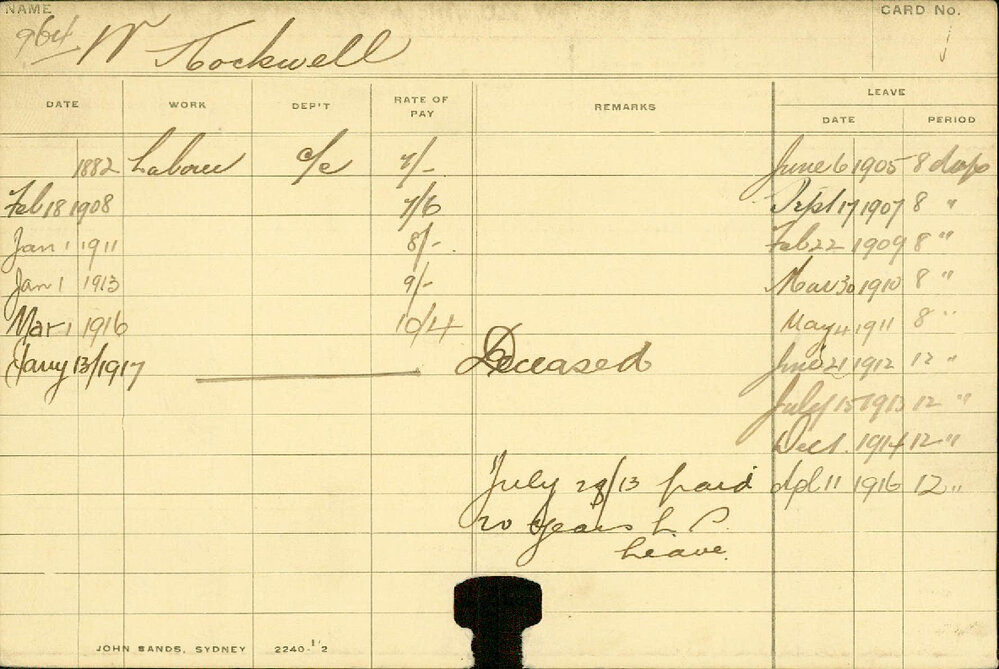 NAME
CARD No.
964 W Stockwell
1
DATE WORK DEP'T RATE OF PAY REMARKS LEAVE
DATE PERIOD
1882 Labour c/e 7/- June 6 1905 8 days
Feb 18 1908 7/6 Sept 17 1907 8 "
Jan 1 1911 8/- Feb 22 1909 8 "
Jan 1 1913 9/- Mar 30 1910 8 "
Mar 1 1916 10/4 May 4 1911 8 "
Jany 13/1917 Deceased June 21 1912 12 "
July 15 1913 12 "
Dec 1. 1914 12 "
July 28/13 paid Apl 11 1916 12 "
20 years L. S.
Leave.
JOHN SANDS, SYDNEY 2240-1'2